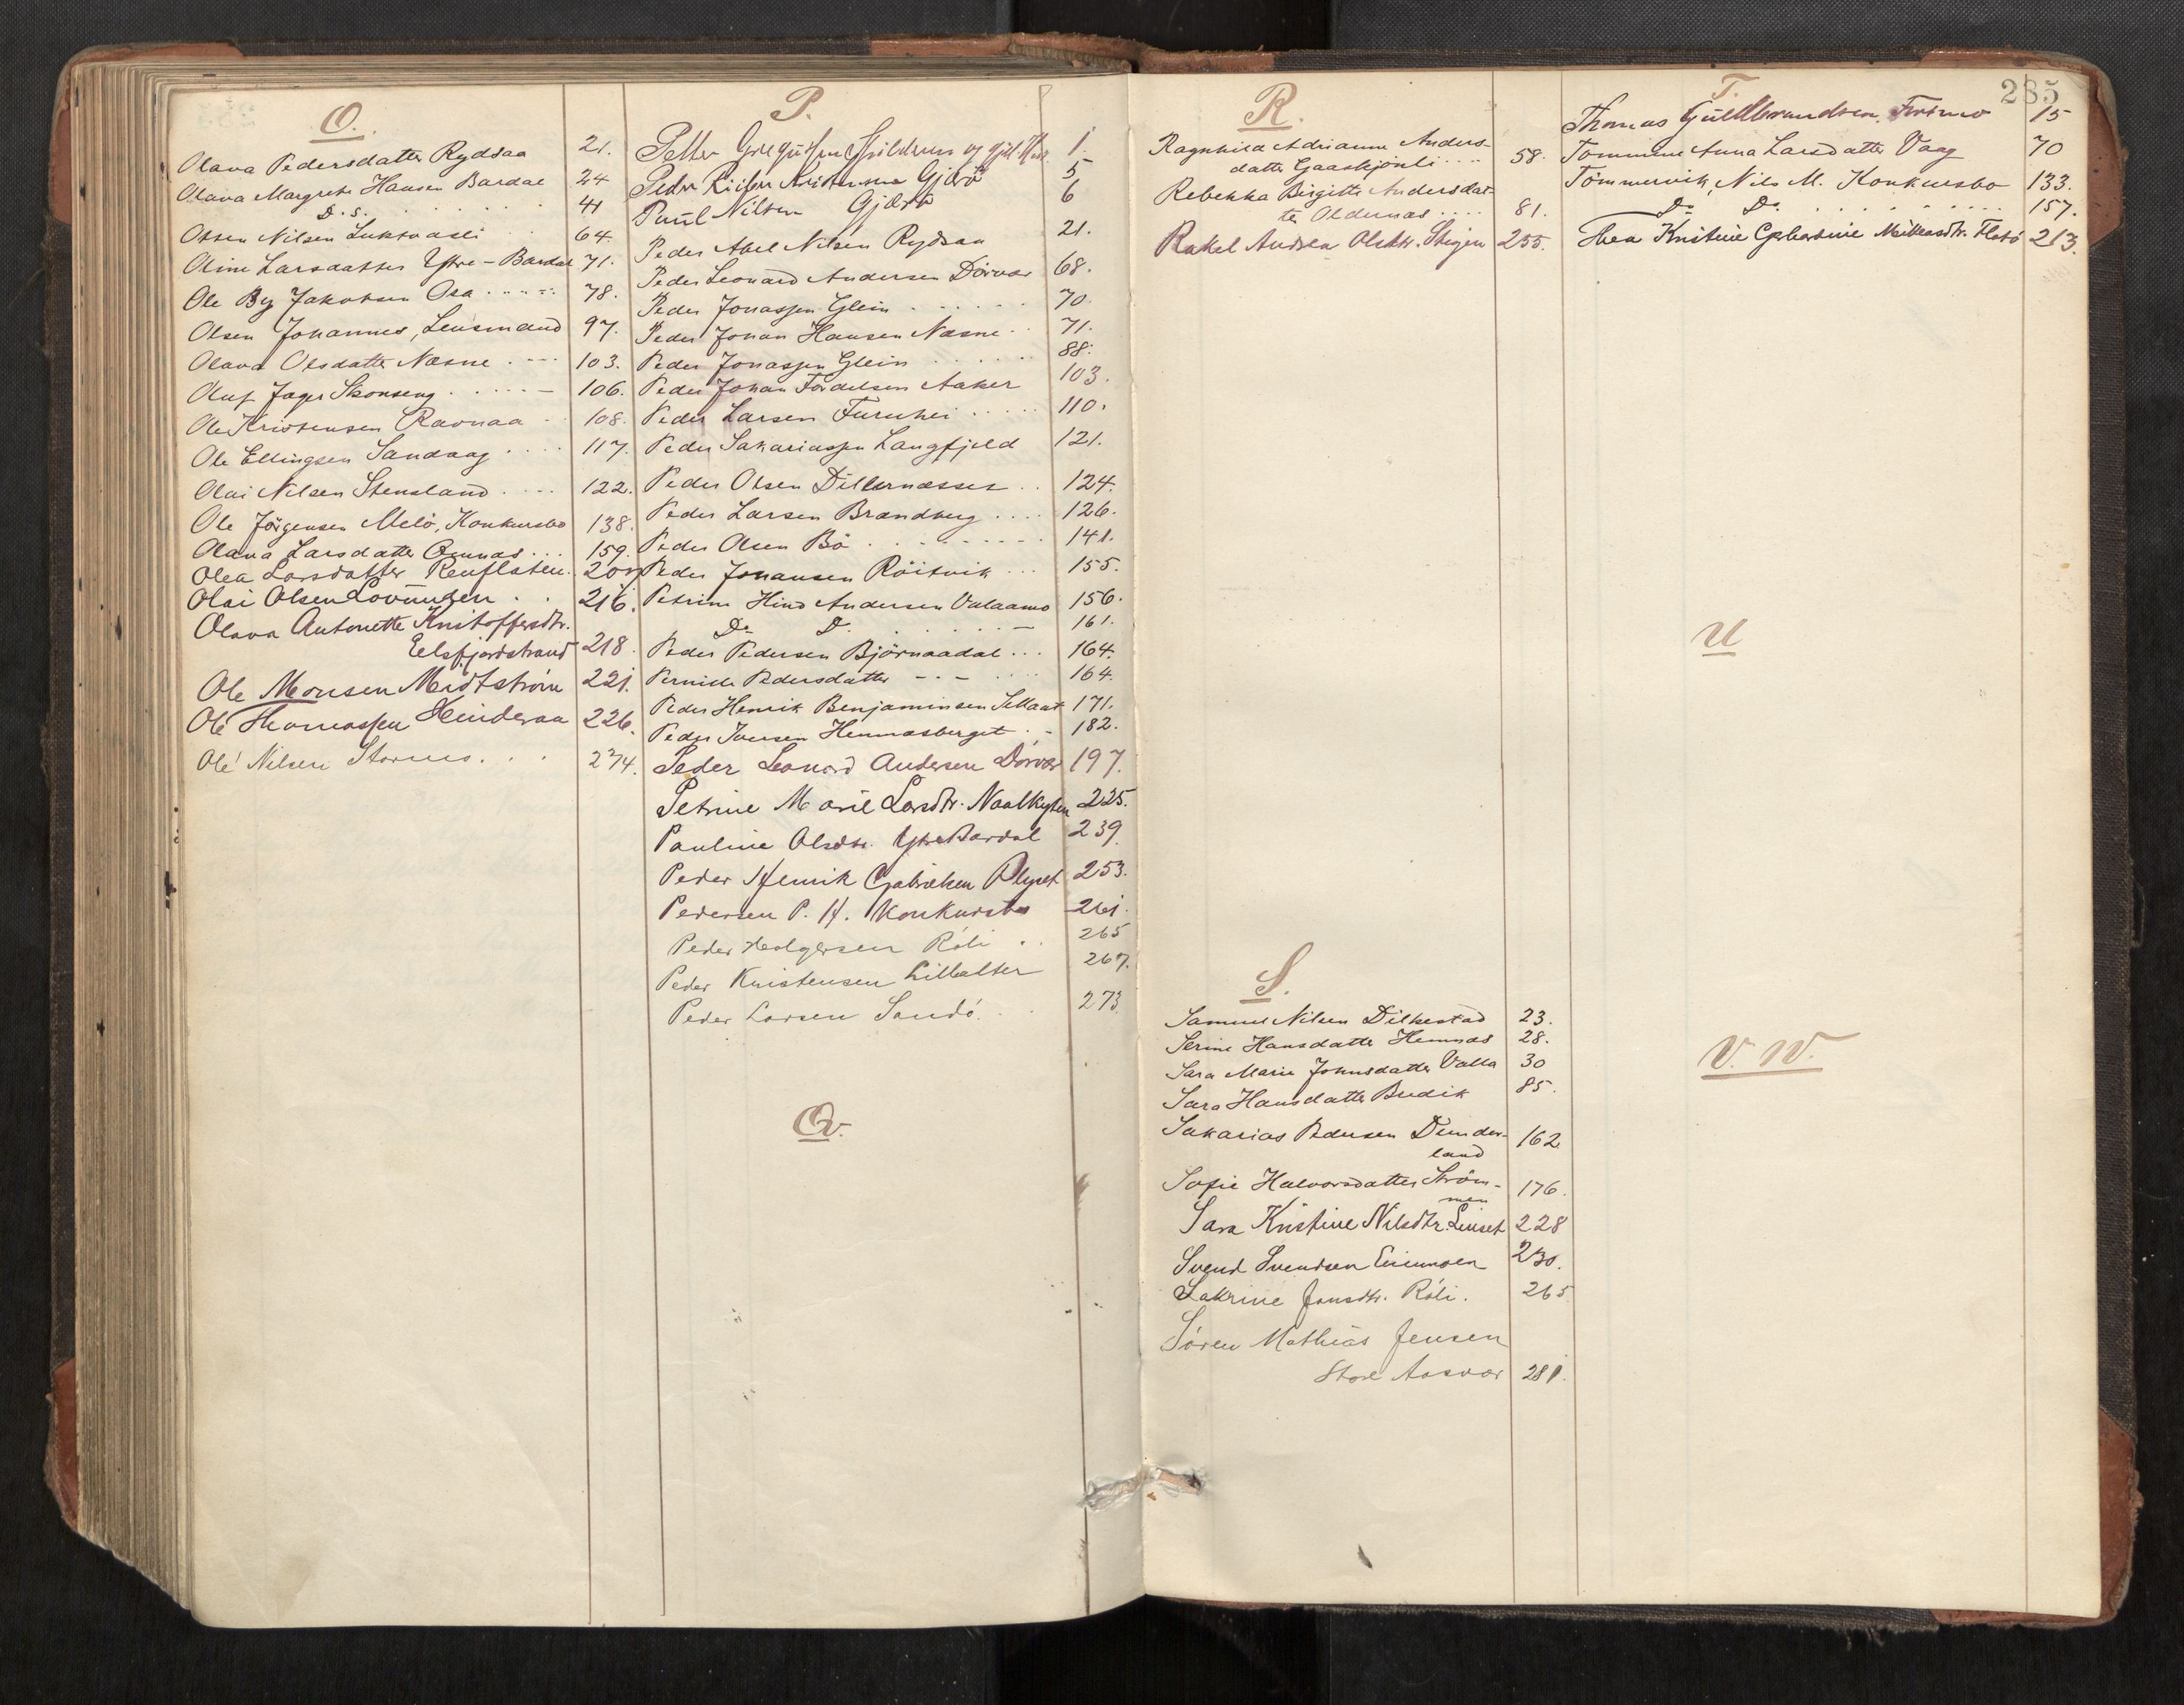 O.
Olava Pedersdatter Rydsaa 21.
Olava Margrete Hansen Bardal 24
D. S. 41
Olsen Nilsen 64.
Oline Larsdatter Ytre-Bardal 71.
Ole By Jakobsen Osa 78.
Olsen Johannes, Lensmand 97.
Olava Olsdatter Nesne 103.
Oluf Jager Skonseng 106.
Ole Kristensen Ravnaa 108.
Ole Ellingsen Sandaag 117.
Olai Nilsen Stensland 122.
Ole Jörgensen Melö, Konkursbo 138.
Olava Larsdatter 159.
Olea Larsdatter Renflaten
Olai Olsen Lovunden 216.
Olava Antonette Kristoffersdtr.
Elsfjordstrand 218.
Ole Monsen Midtström 221.
Ole Thomassen Hinderaa 226.
Ole Nilsen Stornes 274.
P.
Petter 1.
Peder Gjerö 5
Paul Nilsen Gjerö 6
Peder Abel Nilsen Rydsaa 21.
Peder Leonard Andersen Dörvær 68.
Peder Jonassen Glein 70.
Peder Johan Hansen Nesne 71.
Peder Jonassen Glein 88.
Peder Johan Fördelsen Aaker 103.
Peder Larsen Furuhei 110.
Peder Sakariassen Langfjeld 121.
Peder Olsen Dillernesset 124.
Peder Larsen Brandberg 126.
Peder Olsen Bö 141.
Peder Johansen Röitvik 155.
Petrine Hind Andersen Valaamo 156.
Do D. 161.
Peder Pedersen Björnaadal 164.
Pernille Pedersdatter 164.
Peder Henrik Benjaminsen 171.
Peder Iversen Hemnesberget 182.
Peder Leonard Andersen Dörvær 197.
Petrine Marie Larsdtr. 225.
Pauline Olsdtr. Ytre Bardal 239.
Peder Henrik Gabrielsen 253.
Pedersen P. H. Konkursbo 261.
Peder Holgersen Röli 265
Peder Kristensen Lillealter 267.
Peder Larsen Sandö 273
Q.
R.
Ragnhild Adrianna Anders-
datter Gaaskjönli 58.
Rebekka Birgitte Andersdat-
ter Oldernes 81.
Rakel Andrea Olsdtr. Stigen 255.
S.
Samuel Nilsen Dilkestad 23.
Serine Hansdatter Hemnes 28.
Sara Marie Johnsdatter Valla 30
Sara Hansdatter Budik 85.
Sakarias Pedersen Dunder-
land 162.
Sofie Halvorsdatter Ström-
men 176.
Sara Kristine Nilsdtr. Leiset 228
Svend Svendsen 230.
Sakrine Jonsdtr. Röli. 265
Sören Mathias Jensen
Store Aasvær 281.
285
T.
Thomas Gullbrandsen Forsmo 15
Tommine Anna Larsdatter Vaag 70
Tömmervik, Nils M. Konkursbo 133.
Do Do 157.
Thea Kristine Mikkelsdtr. Flatö 213.
U
V. W.